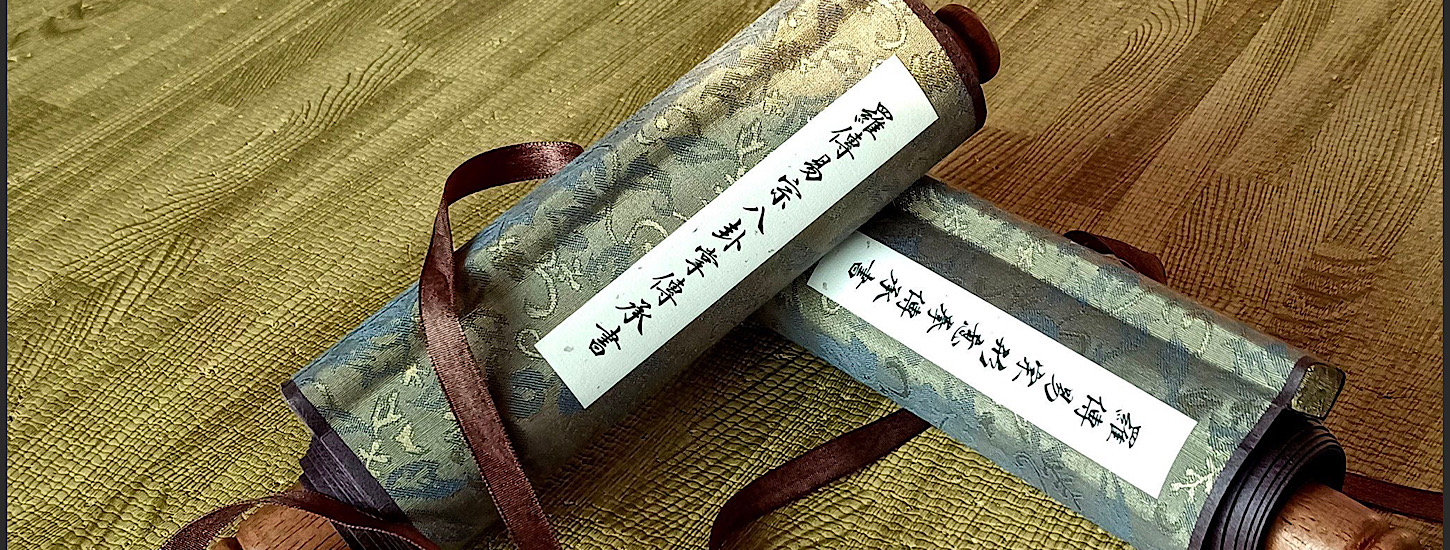 羅傳易宗八卦掌傳承書
羅傳易宗形意拳傳承書